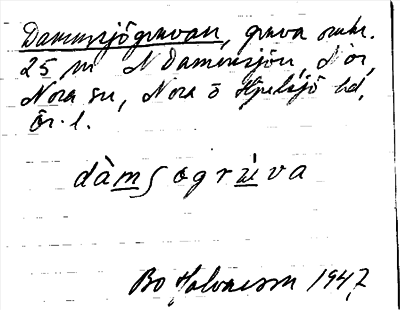 Dammsjögruvan, gruva omkr.
25 m N Dammsjön, Nor,
Nora sn, Nora o Hjulsjö hd,
Ör. l.
dàmʃøgrɯ́va
Bo Halvarson 1947